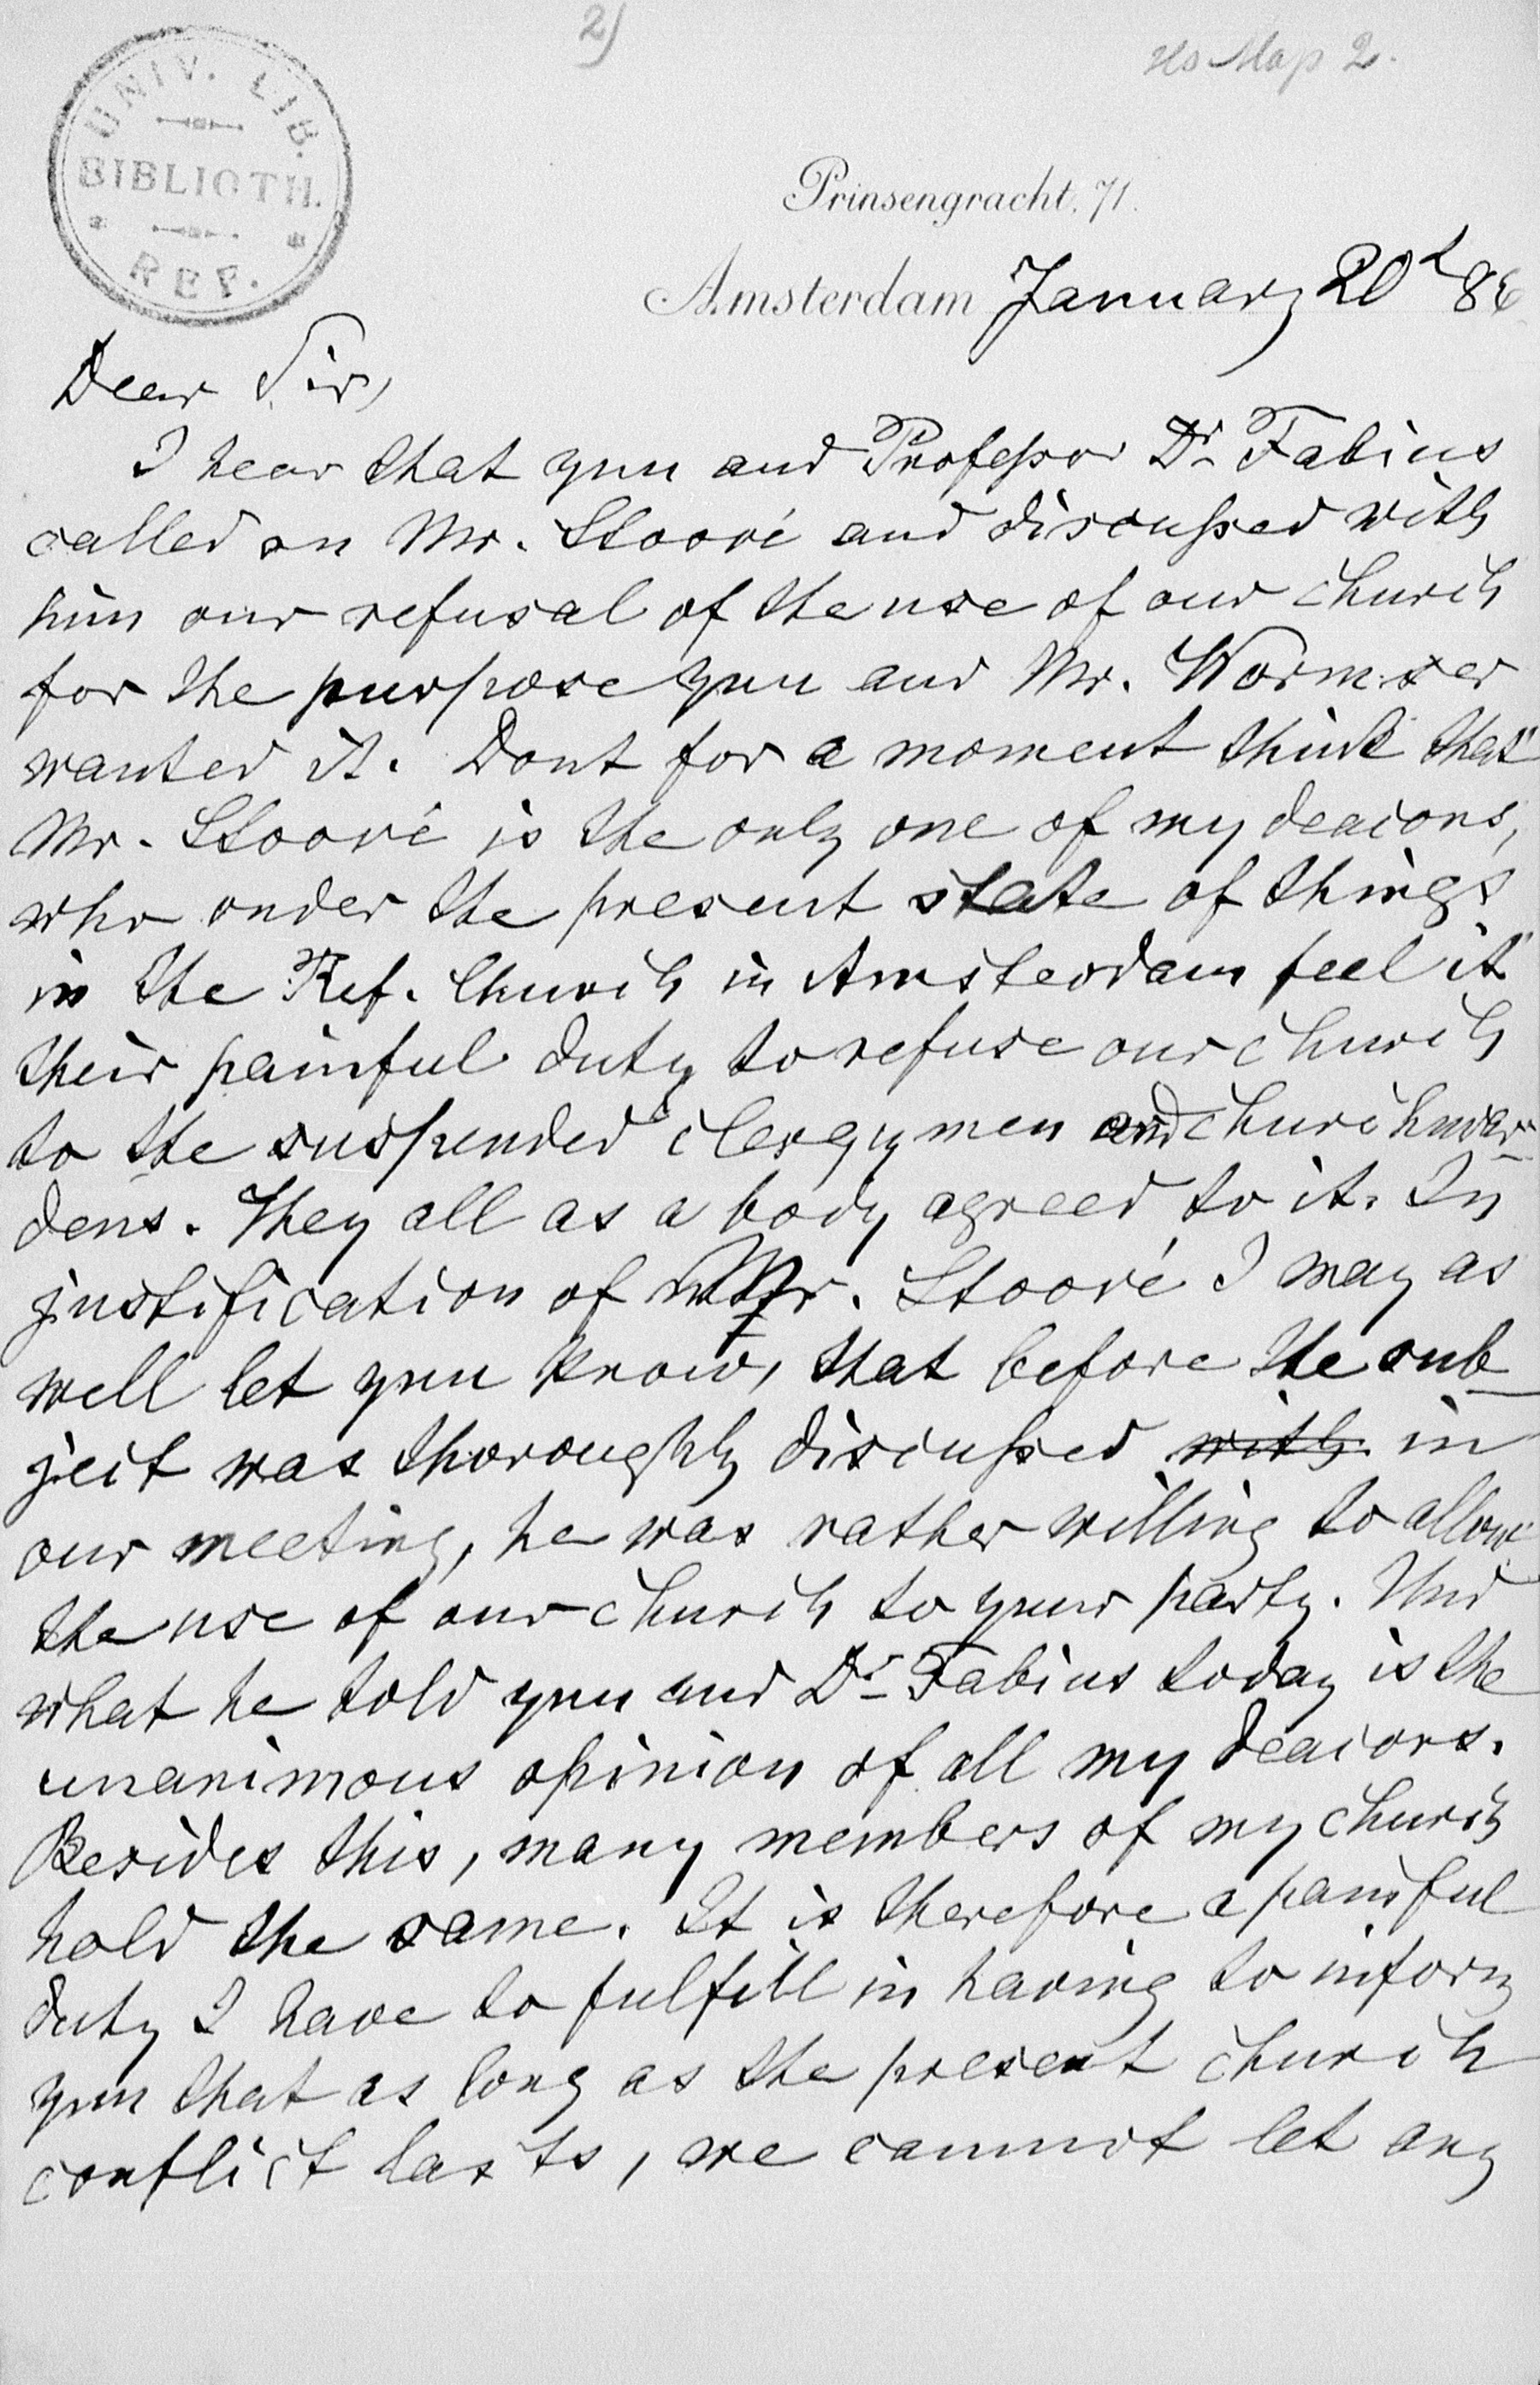 2)
Hs Map 2.
UNIV. LIB.
BIBLIOTH.
REF.
Prinsengracht, 71.
Amsterdam January 20th 86
Dear Sir,
I hear that you and Professor Dr Fabius
called on Mr. Stoové and discussed with
him our refusal of the use of our church
for the purpose you and Mr. Wormser
wanted it. Dont for a moment think that
Mr. Stoové is the only one of my deacons,
who onder the present state of things
in the Ref. Church in Amsterdam feel it
their painful duty to refuse our church
to the suspended clergymen and churchwar-
dens. They all as a body agreed to it. In
justification of Mr. Stoové I may as
well let you know, that before the sub-
ject was thoroughly discussed with in
our meeting, he was rather willing to allow
the use of our church to your party. And
what he told you and Dr Fabius today is the
unanimous opinion of all my deacons.
Besides this, many members of my church
hold the same. It is therefore a painful
duty I have to fulfill in having to inform
you that as long as the present church
conflict lasts, we cannot let any